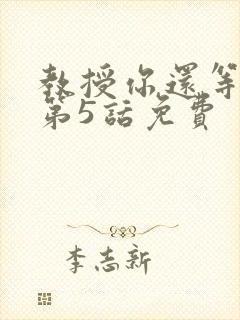 教授你還等
第5話免費
李志新